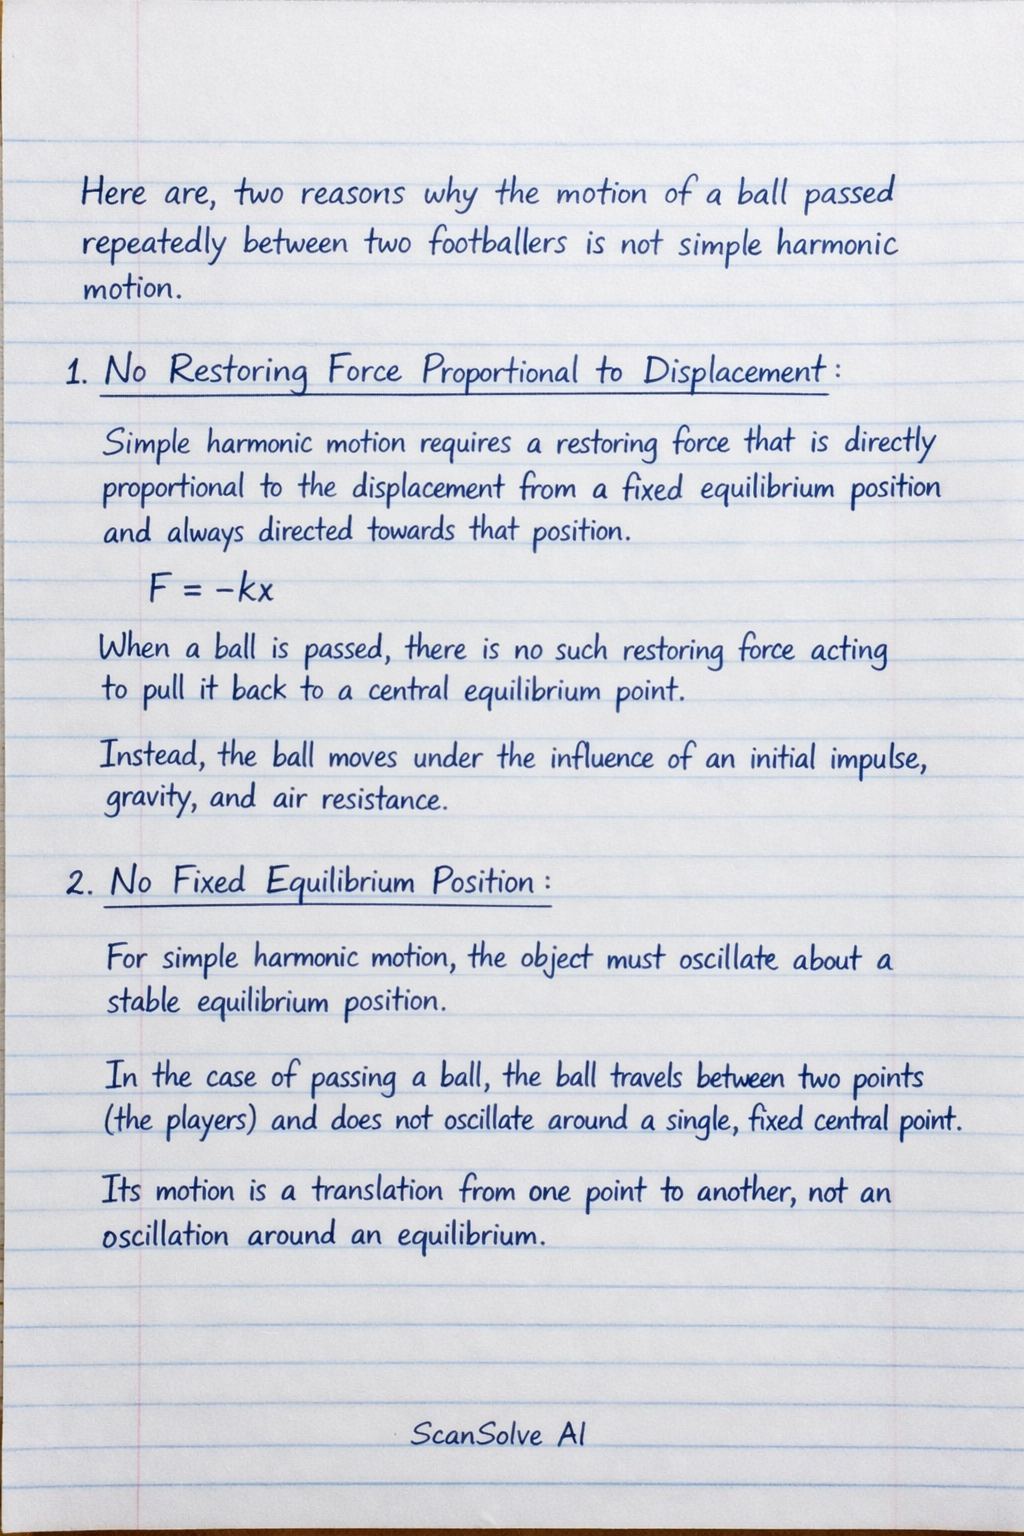 Here are, two reasons why the motion of a ball passed
repeatedly between two footballers is not simple harmonic
motion.
1. No Restoring Force Proportional to Displacement:
Simple harmonic motion requires a restoring force that is directly
proportional to the displacement from a fixed equilibrium position
and always directed towards that position.
F = -kx
When a ball is passed, there is no such restoring force acting
to pull it back to a central equilibrium point.
Instead, the ball moves under the influence of an initial impulse,
gravity, and air resistance.
2. No Fixed Equilibrium Position:
For simple harmonic motion, the object must oscillate about a
stable equilibrium position.
In the case of passing a ball, the ball travels between two points
(the players) and does not oscillate around a single, fixed central point.
Its motion is a translation from one point to another, not an
oscillation around an equilibrium.
ScanSolve AI